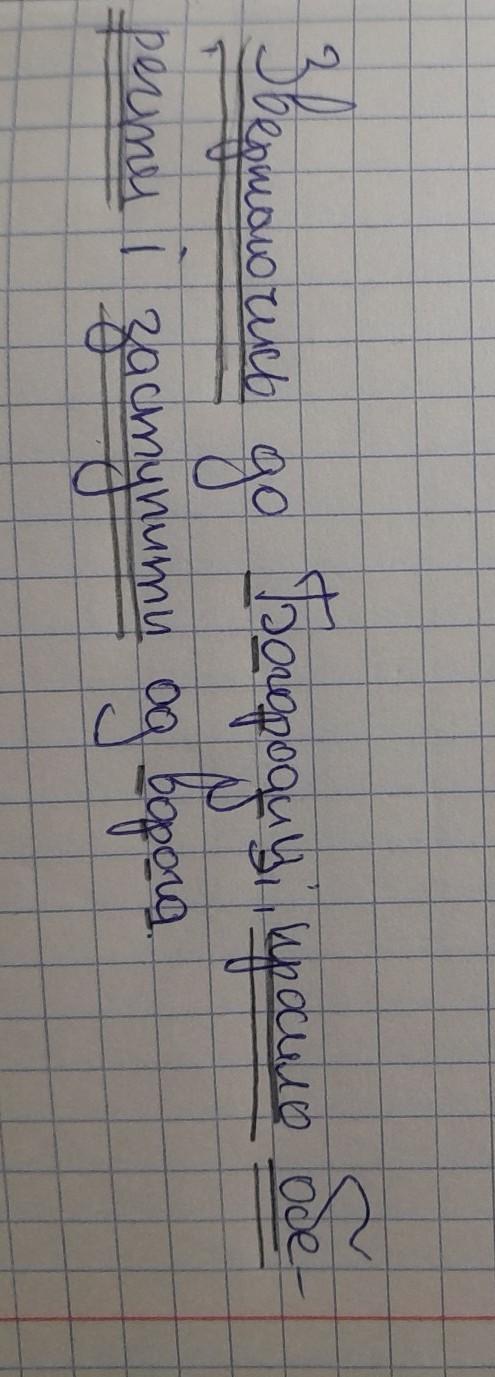 Звертаючись до Богородиці, просило обе-
регти і заступити од ворога.